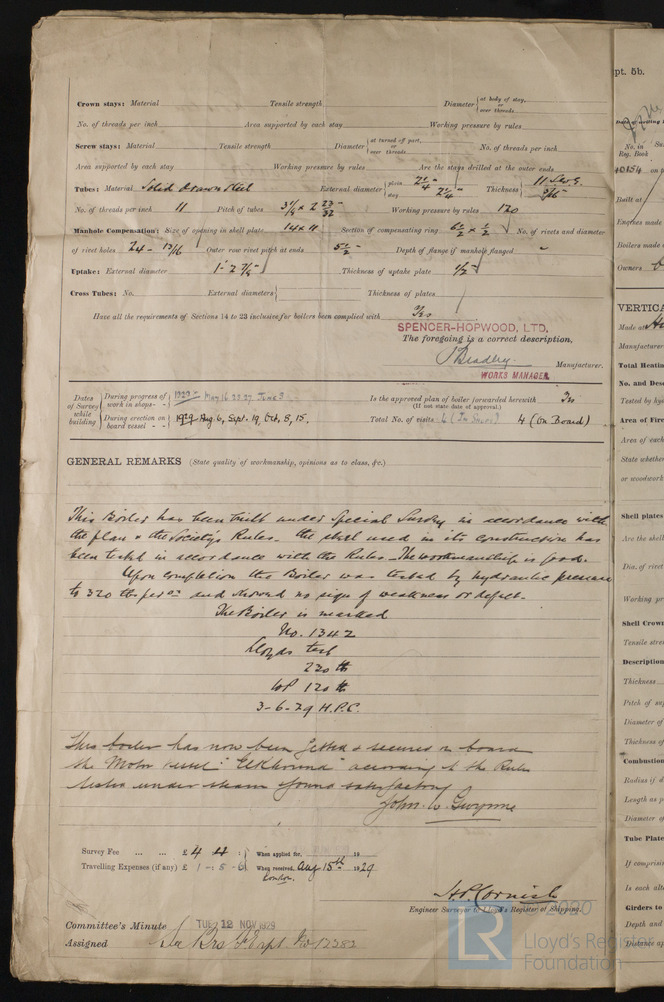 Crown stays: Material Tensile strength Diameter { at body of stay, or over threads
No. of threads per inch Area supported by each stay Working pressure by rules
Screw stays: Material Tensile strength Diameter { at turned off part, or over threads No. of threads per inch
Area supported by each stay Working pressure by rules Are the stays drilled at the outer ends
Tubes: Material Solid drawn steel External diameter { plain 2¼" stay 2¼" Thickness { 11 L.S.G. 5/16
No. of threads per inch 11 Pitch of tubes 3 1/8 x 2 23/32 Working pressure by rules 120
Manhole Compensation: Size of opening in shell plate 14 x 11 Section of compensating ring 6½ x ½ No. of rivets and diameter
of rivet holes 24 - 13/16 Outer row rivet pitch at ends 5½ Depth of flange if manhole flanged "
Uptake: External diameter 1'- 2 7/8" Thickness of uptake plate ½"
Cross Tubes: No. External diameters { Thickness of plates
Have all the requirements of Sections 14 to 23 inclusive for boilers been complied with Yes
SPENCER-HOPWOOD, LTD.
The foregoing is a correct description,
Bradley Manufacturer.
WORKS MANAGER
Dates of Survey while building { During progress of work in shops - - 1929 - May 16 22. 27. June 3 Is the approved plan of boiler forwarded herewith Yes
(If not state date of approval.)
During erection on board vessel - - 1929 Aug 6, Sept. 19, Oct, 8, 15, Total No. of visits 4 (In Shops) 4 (on Board)
GENERAL REMARKS (State quality of workmanship, opinions as to class, &c.)
This Boiler has been built under Special Survey in accordance with
the plan & the Society's Rules. the steel used in its construction has
been tested in accordance with the Rules. The workmanship is good.
Upon completion the Boiler was tested by hydraulic pressure
to 320 lbs per □" and showed no sign of weakness or defect.
The Boiler is marked
No. 1342
Lloyds test
220 lb
WP 120 lb
3-6-29 H.P.C.
This boiler has now been fitted & secured on board
the Motor vessel "Elkhound" according to the Rules
tested under steam & found satisfactory
John. C. Gwynne
Survey Fee ... ... £ 4 4 : When applied for, 19
Travelling Expenses (if any) £ 1 : 8 - 6 When received, Aug 15th 1929
London.
H P Cornish
Engineer Surveyor to Lloyd's Register of Shipping.
Committee's Minute TUE 12 NOV 1929
Assigned
© 2020
LR
Lloyd's Register
Foundation
pt. 5b.
No. in
Reg. Book
40154
Built at
Engines made
Boilers made
Owners
VERTICA
Made at
Manufacturer
Total Heatin
No. and Desc
Tested by hy
Area of Fire
Area of each
State whether
or woodwork
Shell plates
Are the shell
Dia. of rivet
Working pr
Shell Crown
Tensile stre
Description
Thickness
Pitch of
Diameter of
Thickness of
Combustion
Radius if d
Length as p
Diameter of
Tube Plate
If comprisin
Is each
Girders to
Depth and
Distance ap